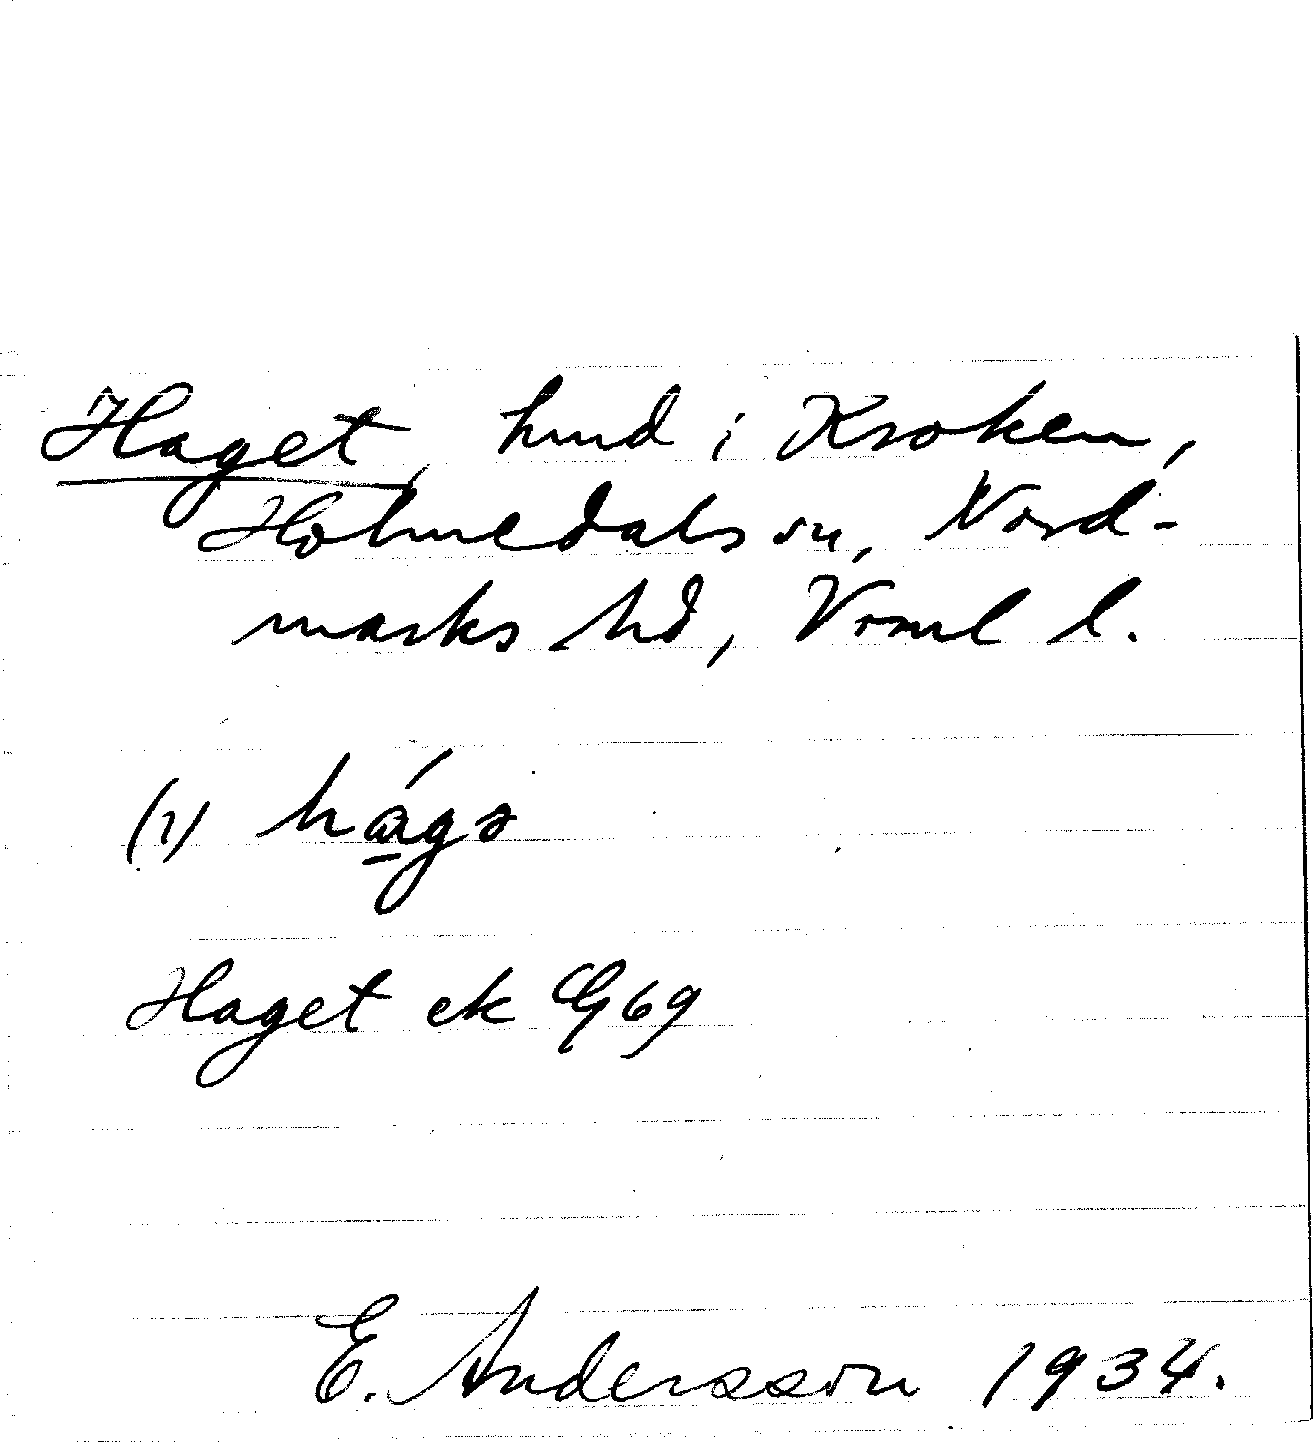 Haget, hmd i Kroken,
Holmedals sn, Nord-
marks hd, Vrml l.
(1) hágə
Haget ek G69
E. Andersson 1934.